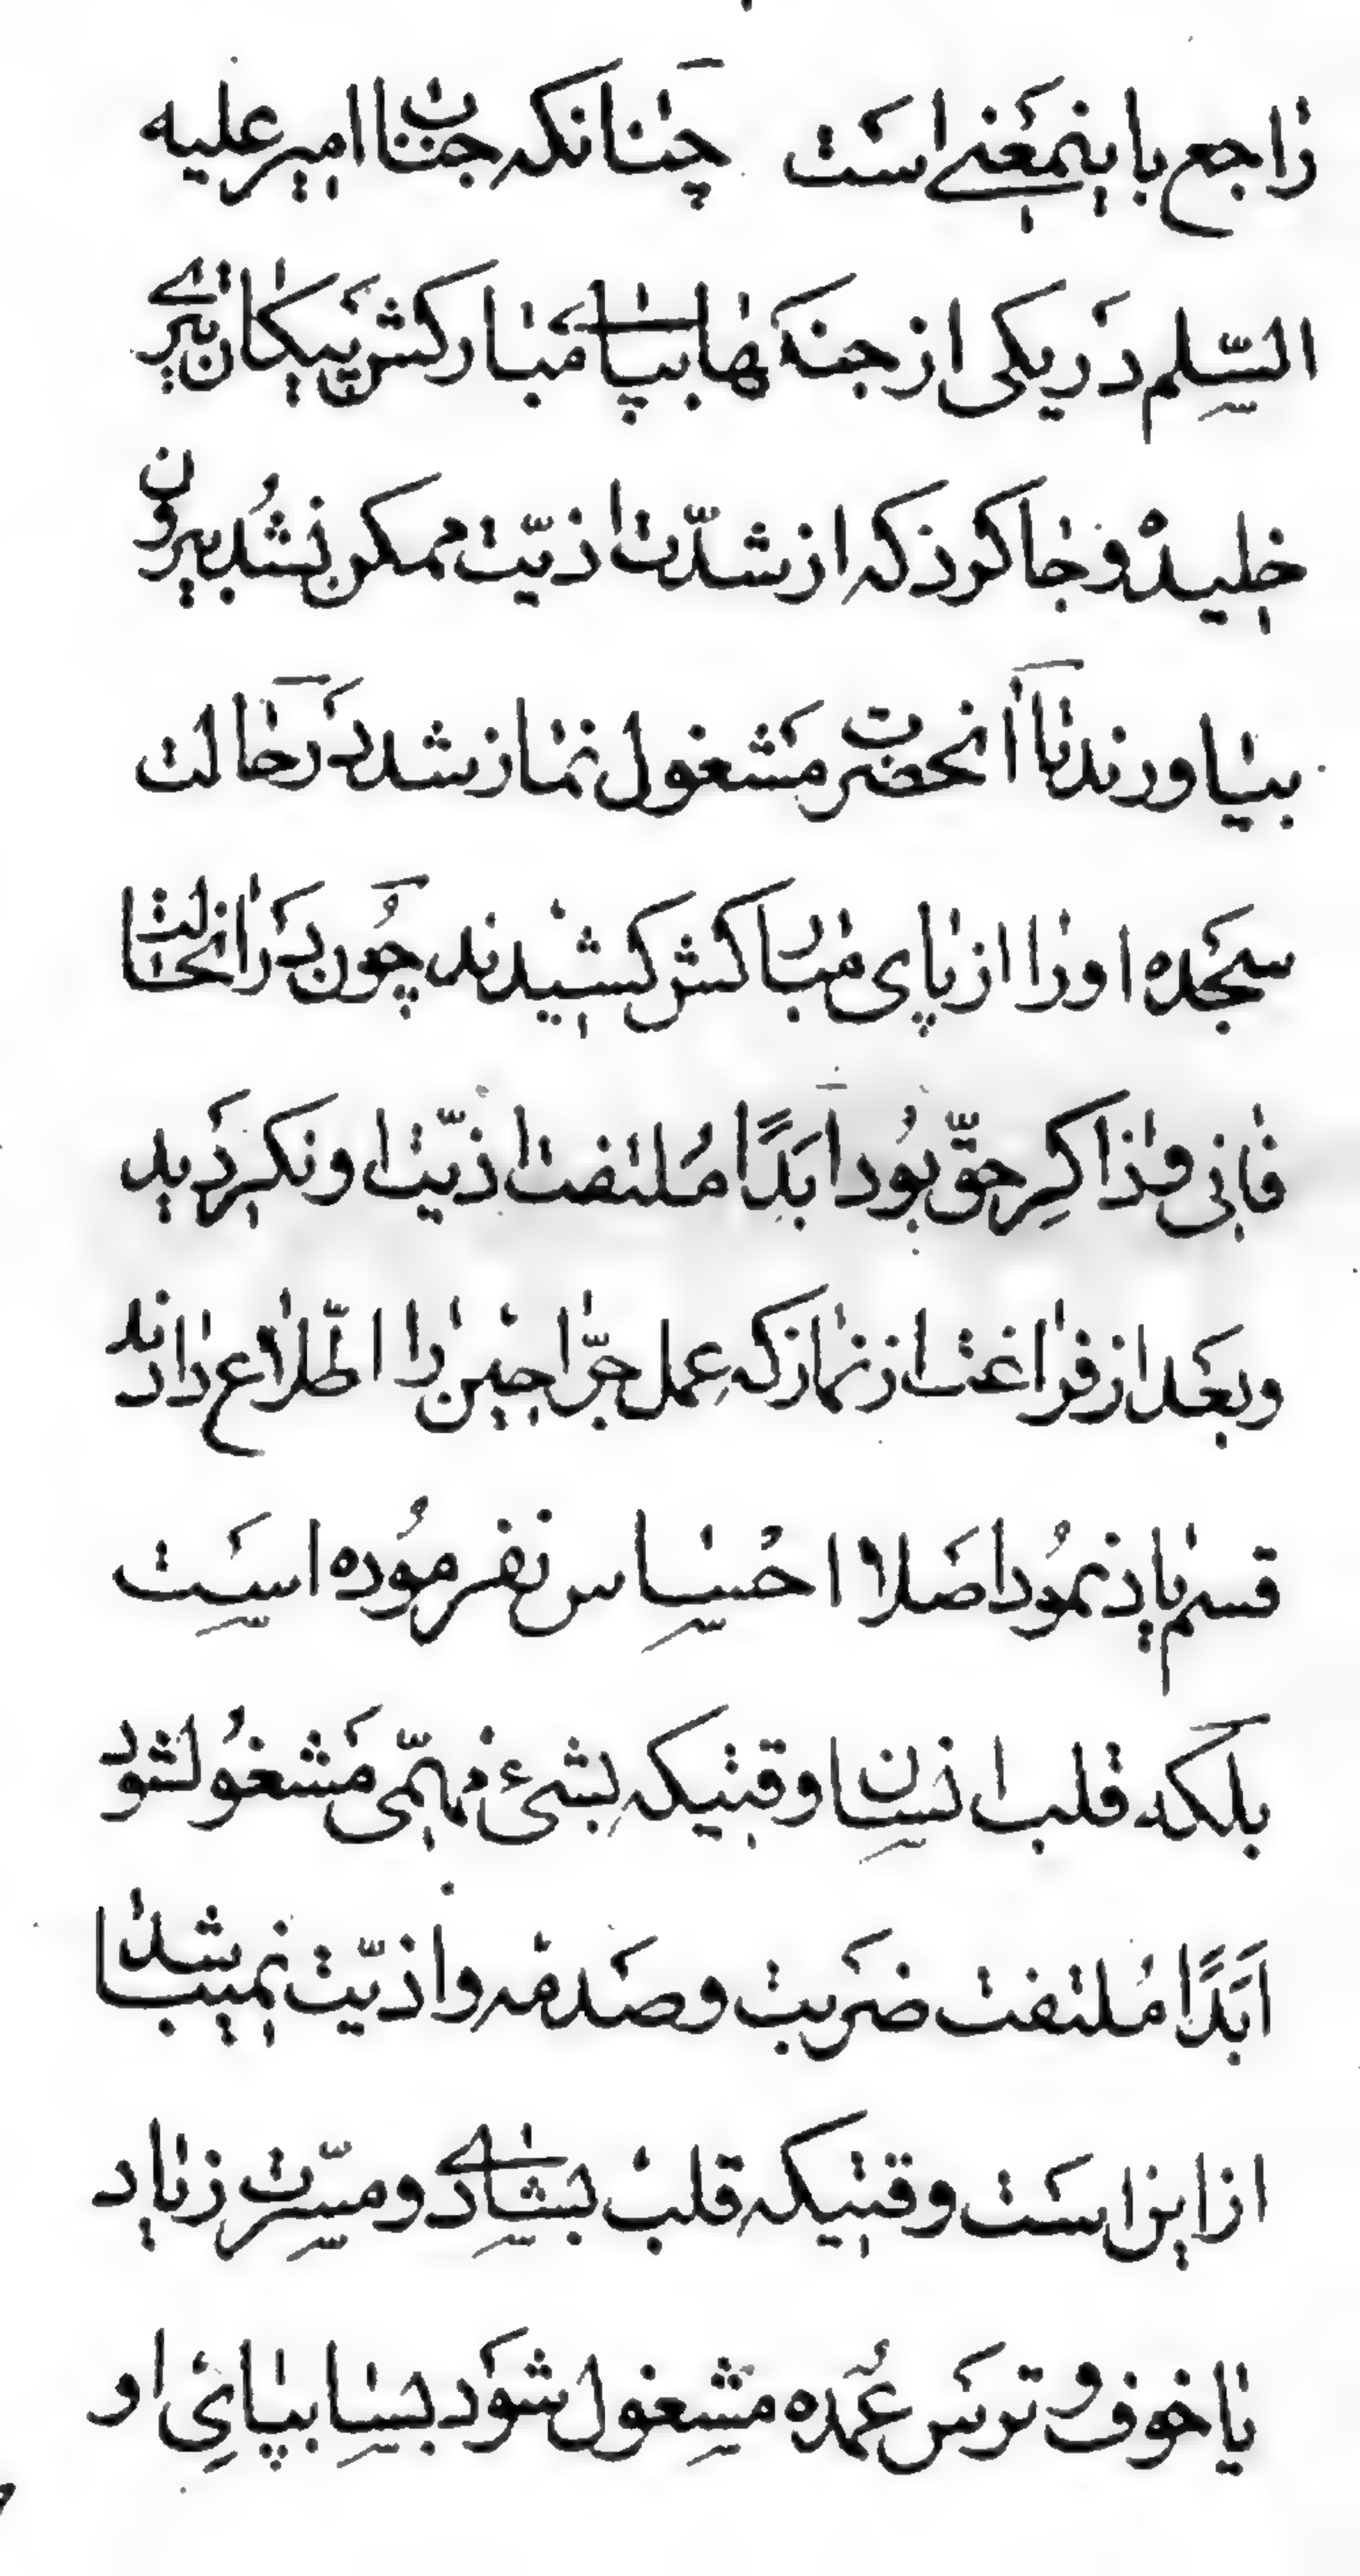 راجع باینمعنی است چنانکه جناب امیر علیه
السّلم در یکی از جنگها بپای مبارکش پیکان تیری
خلید و جا کرد که از شدّت اذیّت ممکن نشد بیرون
بیاورند تا آنحضرت مشغول نماز شد در حالت
سجده او را از پای مبارکش کشیدند چون در انحالت
فانی و ذاکر حقّ بود ابدًا ملتفت اذیّت او نکردید
و بعد از فراغت از نماز که عمل جرّاحین را اطّلاع دادند
قسم یاد نمود اصلا احساس نفرموده است
بلکه قلب انسان وقتیکه بشیء مهمّی مشغول شود
ابدًا ملتفت ضربت و صدمه و اذیّت نمیباشد
از این است وقتیکه قلب بشادی و مسّرت زیاد
یا خوف و ترس عمده مشغول شود بسا بپای او